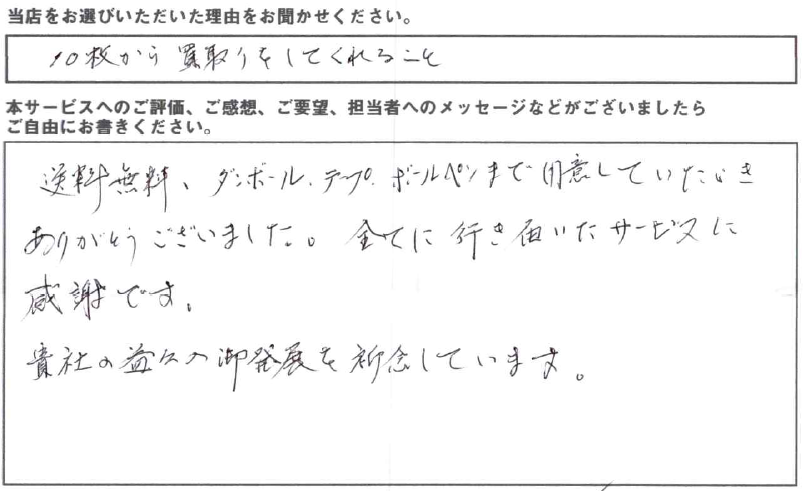 当店をお選びいただいた理由をお聞かせください。
10枚から買取りをしてくれること
本サービスへのご評価、ご感想、ご要望、担当者へのメッセージなどがございましたら
ご自由にお書きください。
送料無料、ダンボール、テープ、ボールペンまで用意していただき
ありがとうございました。全てに行き届いたサービスに
感謝です。
貴社の益々の御発展を祈念しています。